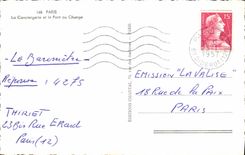 146. PARIS
La Conciergerie et le Pont au Change
15F
1957
Le Baromètre
Réponse : 4275
THIRIET
23 Bis Rue Erard
Paris (12)
EMISSION "LA VALISE"
18 Rue de la PAIX
PARIS